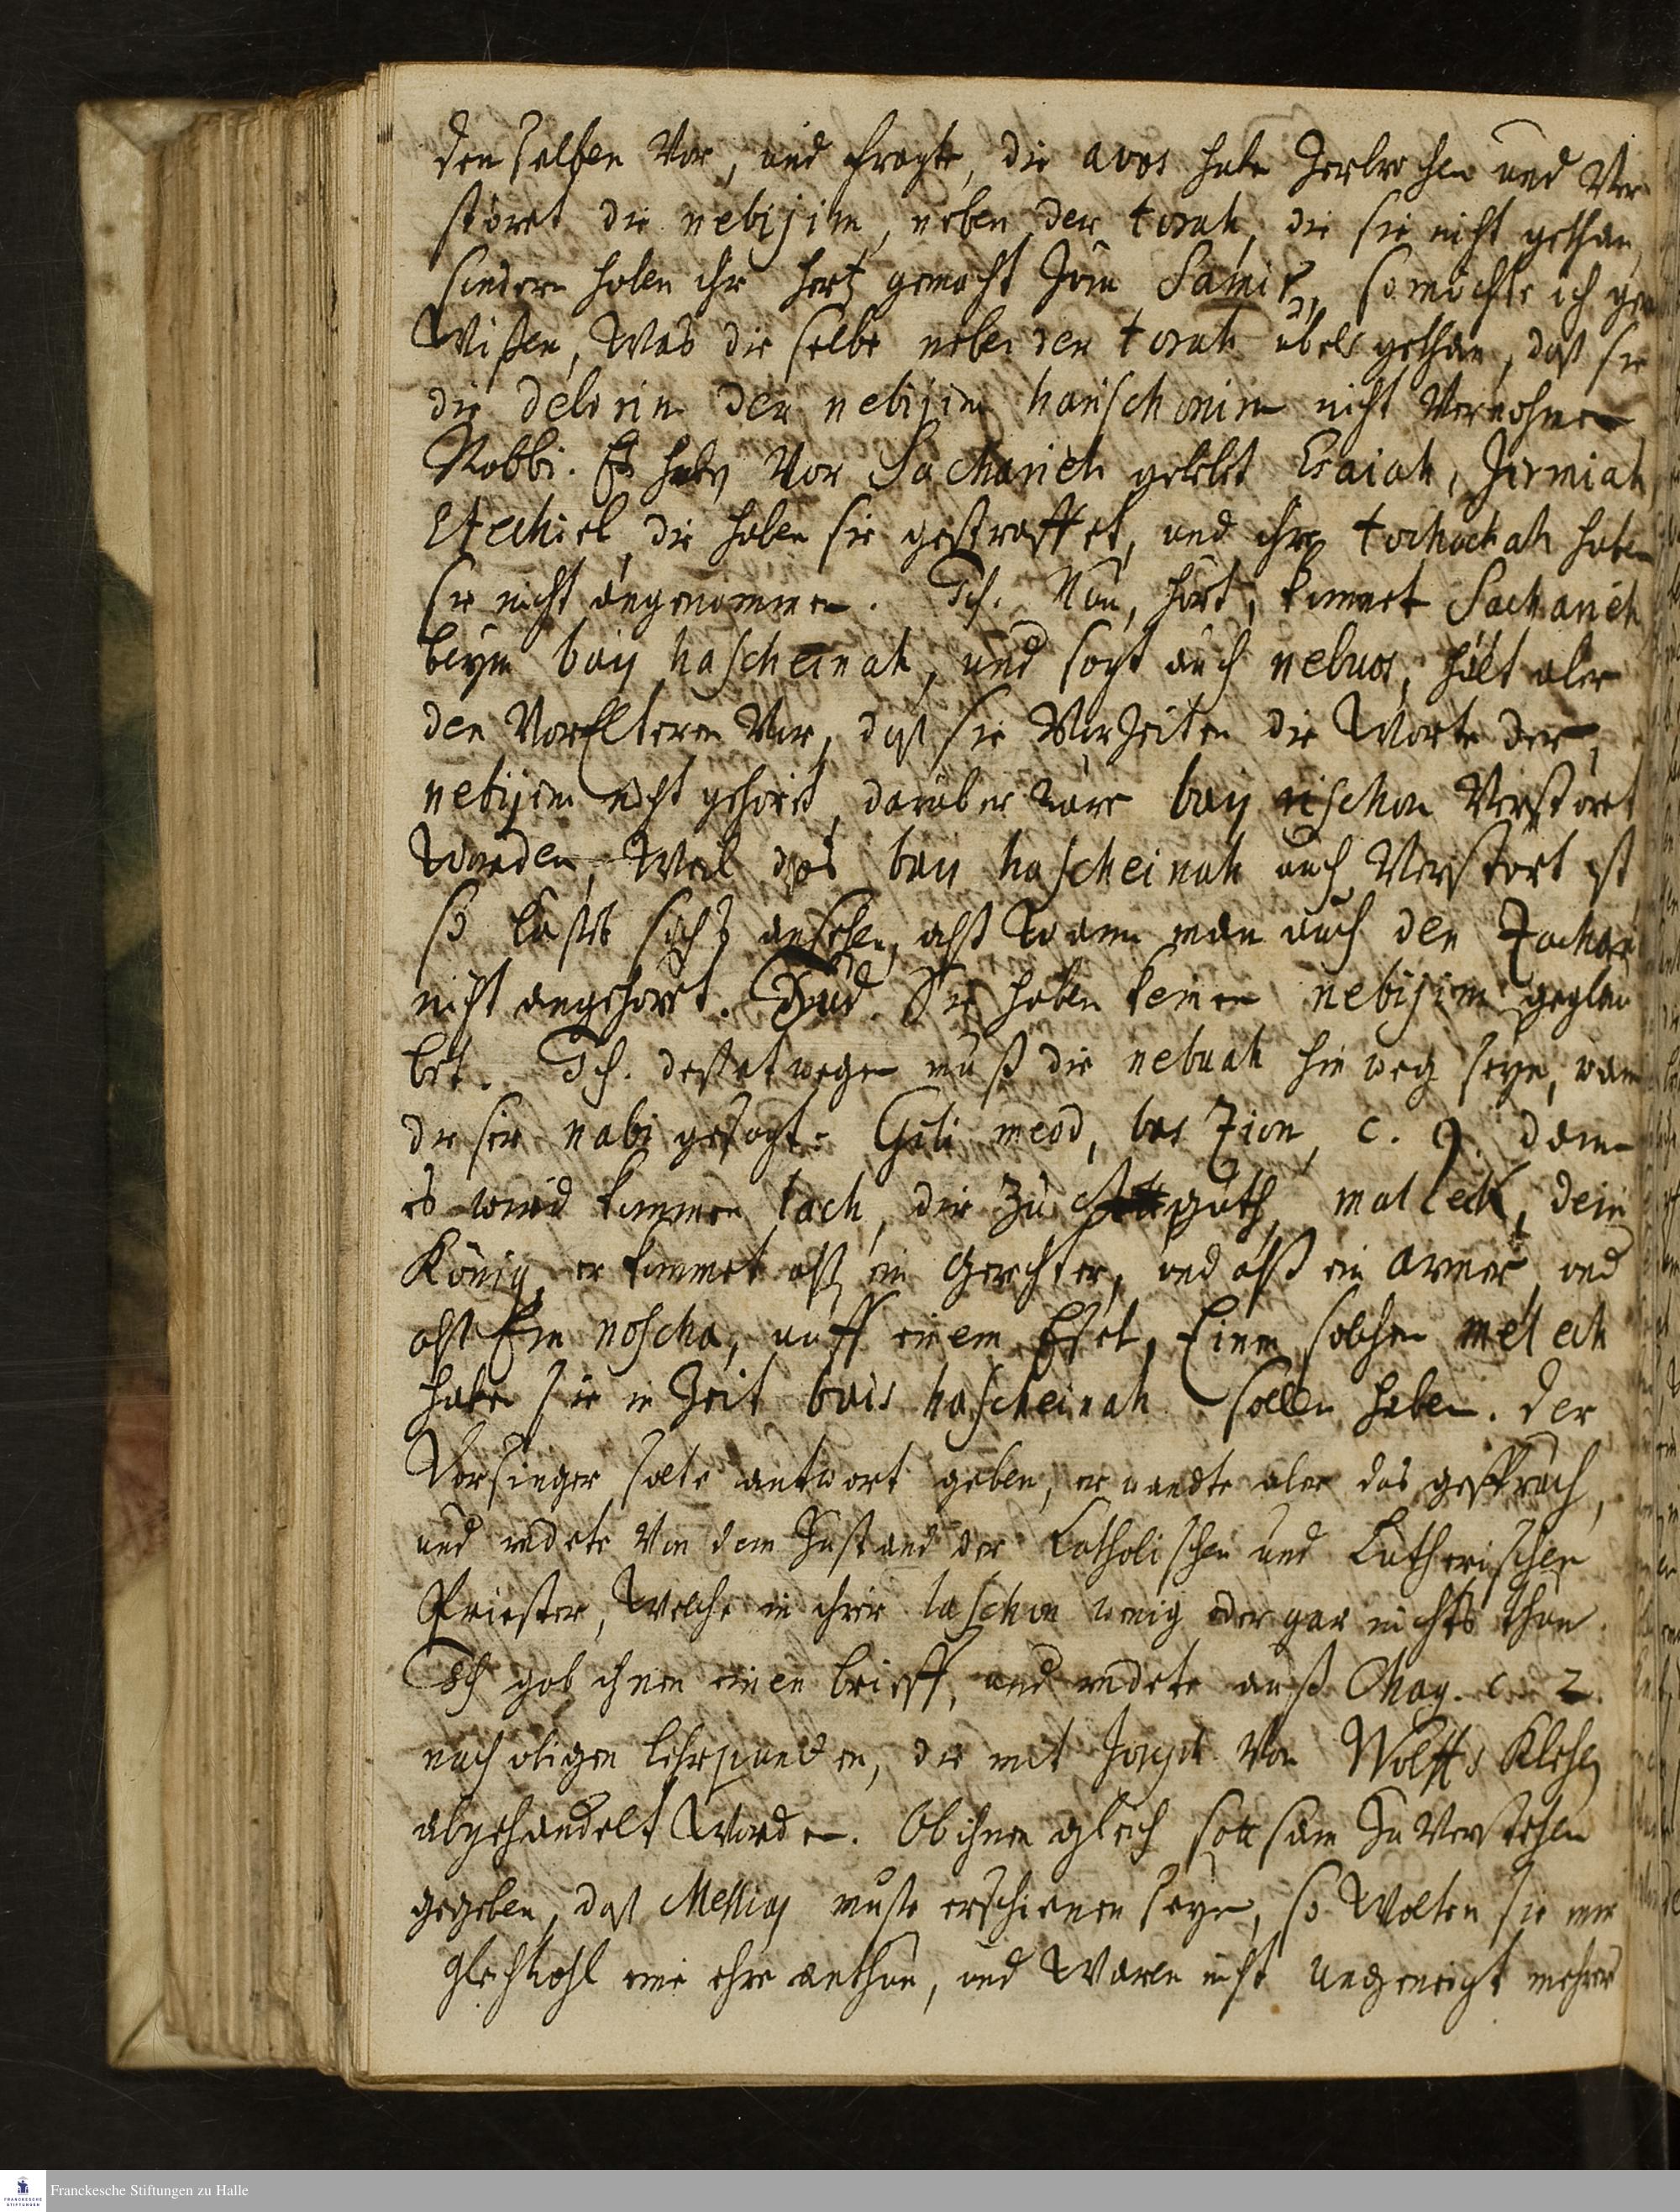 denselben Vor, und fragte, die avos habe zerbrochen und Ver
störet die nebijim, neben der torah, die sie nicht gethan,
sondern haben ihr hertz gemacht zum Samir, so möchte ich gern
Wißen, Was die selbe neben der torah übels gethan, daß sie
die deborim der nebijim harischonim nicht Vernohmen
Rabbi. Es habe Vor Sacharieh gelebt Esaiah, Jirmiah,
Etechiel, die haben sie gestraffet, und ihre tochachah haben
sie nicht angenommen. Ich. Nun, hört, kommet Sacharieh
beym bay hascheinah, und sagt auch nebuos, hält aber
den VorElteren Vor, daß sie Vorzeiten die Worte der
nebijim nicht gehöret, darüber wäre bay rischon Verstöret
Worden, Weil das bay hascheinah auch Verstört ist
so laßts sichs ansehen, alß Wann man auch den Zachari
nicht angehört. Jud. Sie haben keinen nebijim geglau
bet. Ich. deßetwegen muß die nebuah hinweg seyn, wan
dieser nabi gesagt: Gili meod, bas Zion, c. 9. dann
es wird kommen lach, dir zu guth, malleck, dein
König, er kommet alß ein Gerechter, und alß ein armer, und
alß Ein noscha, auff einem Esel, Einen solchen melech
haben sie in Zeit bais hascheinah sollen haben. der
Vorsinger solte antwort geben, er wandte aber das gespräch,
und redete Von dem Zustand der Catholischen und Lutherischen
Priester, Welche in ihrer laschon wenig oder gar nichts thun.
Ich gab ihnen einen brieff, und redete auß Chag. c. 2.
nach obigen Lehrpuncten, die mit Von Wolffs
abgehandelt Worden. Ob ihnen gleich sattsam Zu Verstehen
gegeben, daß Messias muste erschienen seyn, so Wolten sie mir
gleichwohl eine ehre anthun, und Waren nicht ungeneigt mehrer
Franckesche Stiftungen zu Halle